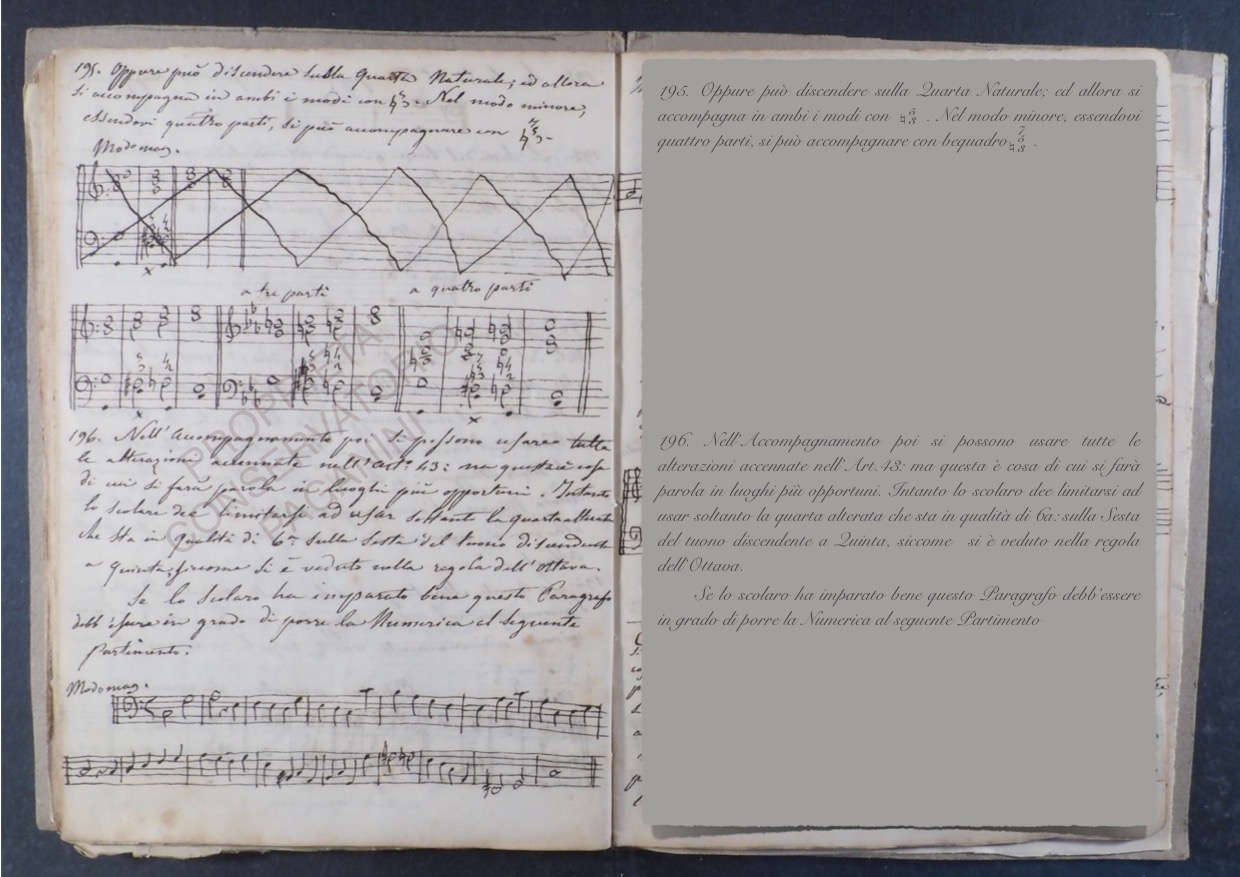 195. Oppure può discendere sulla Quarta Naturale; ed allora
si accompagna in ambi i modi con ♮3 5. Nel modo minore,
essendovi quattro parti, si può accompagnare con ♮3 5 7.
Modo mag.
a tre parti a quattro parti
196. Nell'Accompagnamento poi si possono usare tutte
le alterazioni accennate nell'Art. 43: ma questa è cosa
di cui si farà parola in luoghi più opportuni. Intanto
lo scolaro dee limitarsi ad usar soltanto la quarta alterata
che sta in qualità di 6a sulla Sesta del tuono discendente
a quinta, siccome si è veduto nella regola dell'Ottava.
Se lo scolaro ha imparato bene questo Paragrafo
debb'essere in grado di porre la Numerica al seguente
Partimento.
Modo mag.
PROPRIETÀ
CONSERVATORIO
195. Oppure può discendere sulla Quarta Naturale; ed allora si
accompagna in ambi i modi con ♮3 5 . Nel modo minore, essendovi
quattro parti, si può accompagnare con bequadro ♮3 5 7 .
196. Nell'Accompagnamento poi si possono usare tutte le
alterazioni accennate nell'Art. 43: ma questa è cosa di cui si farà
parola in luoghi più opportuni. Intanto lo scolaro dee limitarsi ad
usar soltanto la quarta alterata che sta in qualità di 6a: sulla Sesta
del tuono discendente a Quinta, siccome si è veduto nella regola
dell'Ottava.
Se lo scolaro ha imparato bene questo Paragrafo debb'essere
in grado di porre la Numerica al seguente Partimento